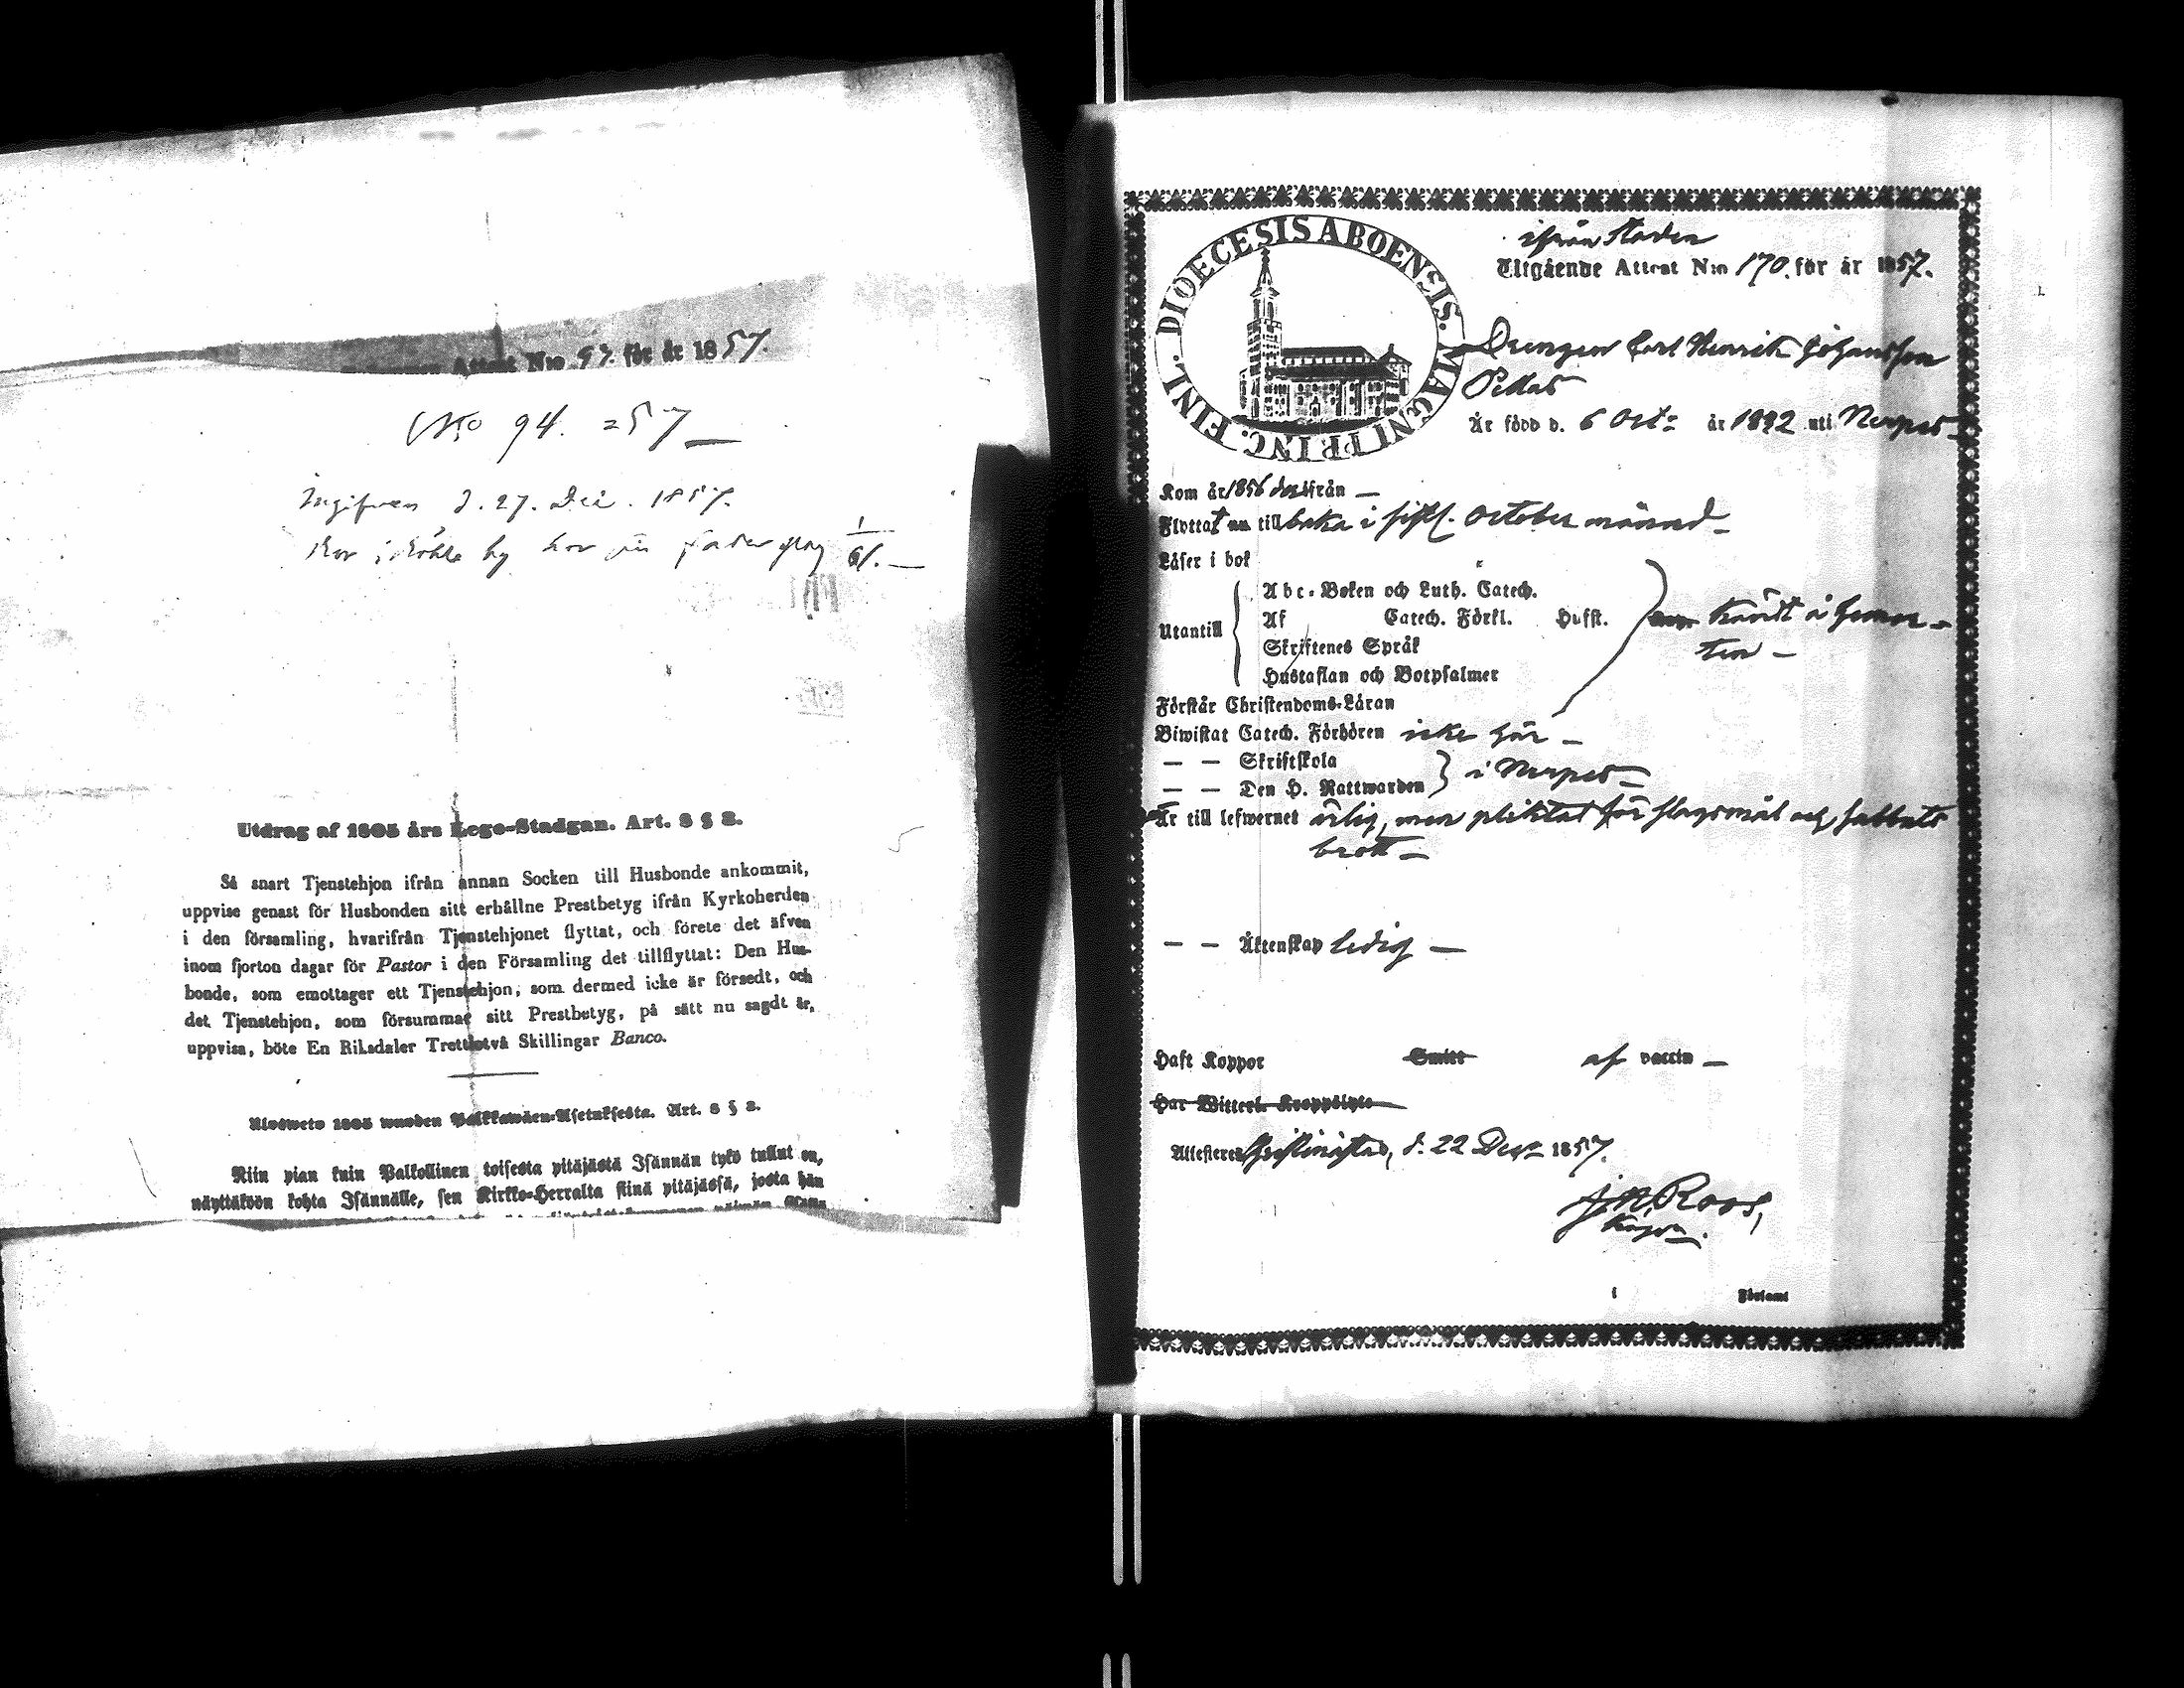 Attest N:o 97. för år 1857.
No 94. 57
Ingifven d. 27. Dec. 1857.
by hos sin fader pag 1/61.
Utdrag af 1805 års Lego-Stadgan. Art. 8 § 2.
Så snart Tjenstehjon ifrån annan Socken till Husbonde ankommit,
uppvise genast för Husbonden sitt erhållne Prestbetyg ifrån Kyrkoherden
i den församling, hvarifrån Tjenstehjonet flyttat, och förete det äfven
inom fjorton dagar för Pastor i den Församling det tillflyttat: Den Hus-
bonde, som emottager ett Tjenstehjon, som dermed icke är försedt, och
det Tjenstehjon, som försummar sitt Prestbetyg, på sätt nu sagdt är,
uppvisa, böte En Riksdaler Trettiotvå Skillingar Banco.
Ulosweto 1805 wuoden Palkkawäen-Asetuksesta. Art. 8 § 2.
Niin pian kuin Palkollinen toisesta pitäjästä Isännän tykö tullut on,
näyttäköön kohta Isännälle, sen Kirkko-Herralta siinä pitäjässä, josta hän
DIOECESIS ABOENSIS. MAGNI PRINC. FINL.
ifrån Staden
Utgående Attest N:o 170. för år 1857.
Drengen Carl Henrik Johansson
Pellas
Är född d. 6 Oct: år 1832 uti Nerpes
Kom år 1856 derifrån —
Flyttat nu tillbaka i sistl. October månad —
Läser i bok
Utantill
Abc-Boken och Luth. Catech.
Af Catech. Förkl. Hufst.
Skriftenes Språk
Hustaflan och Botpsalmer
kändt å hemor-
ten —
Förstår Christendoms-Läran
Biwistat Catech. Förhören icke här —
— — Skriftskola
— — Den H. Nattwarden
i Nerpes —
Är till lefwernet ärlig, men pliktat för slagsmål och sabbats
brott —
— — Äktenskap ledig —
Haft Koppor Smitt af vaccin —
Har Witterl. Kroppslyte
Attesteres Christinæstad, d. 22 Decr 1857.
J.N. Roos,
i Förstamt